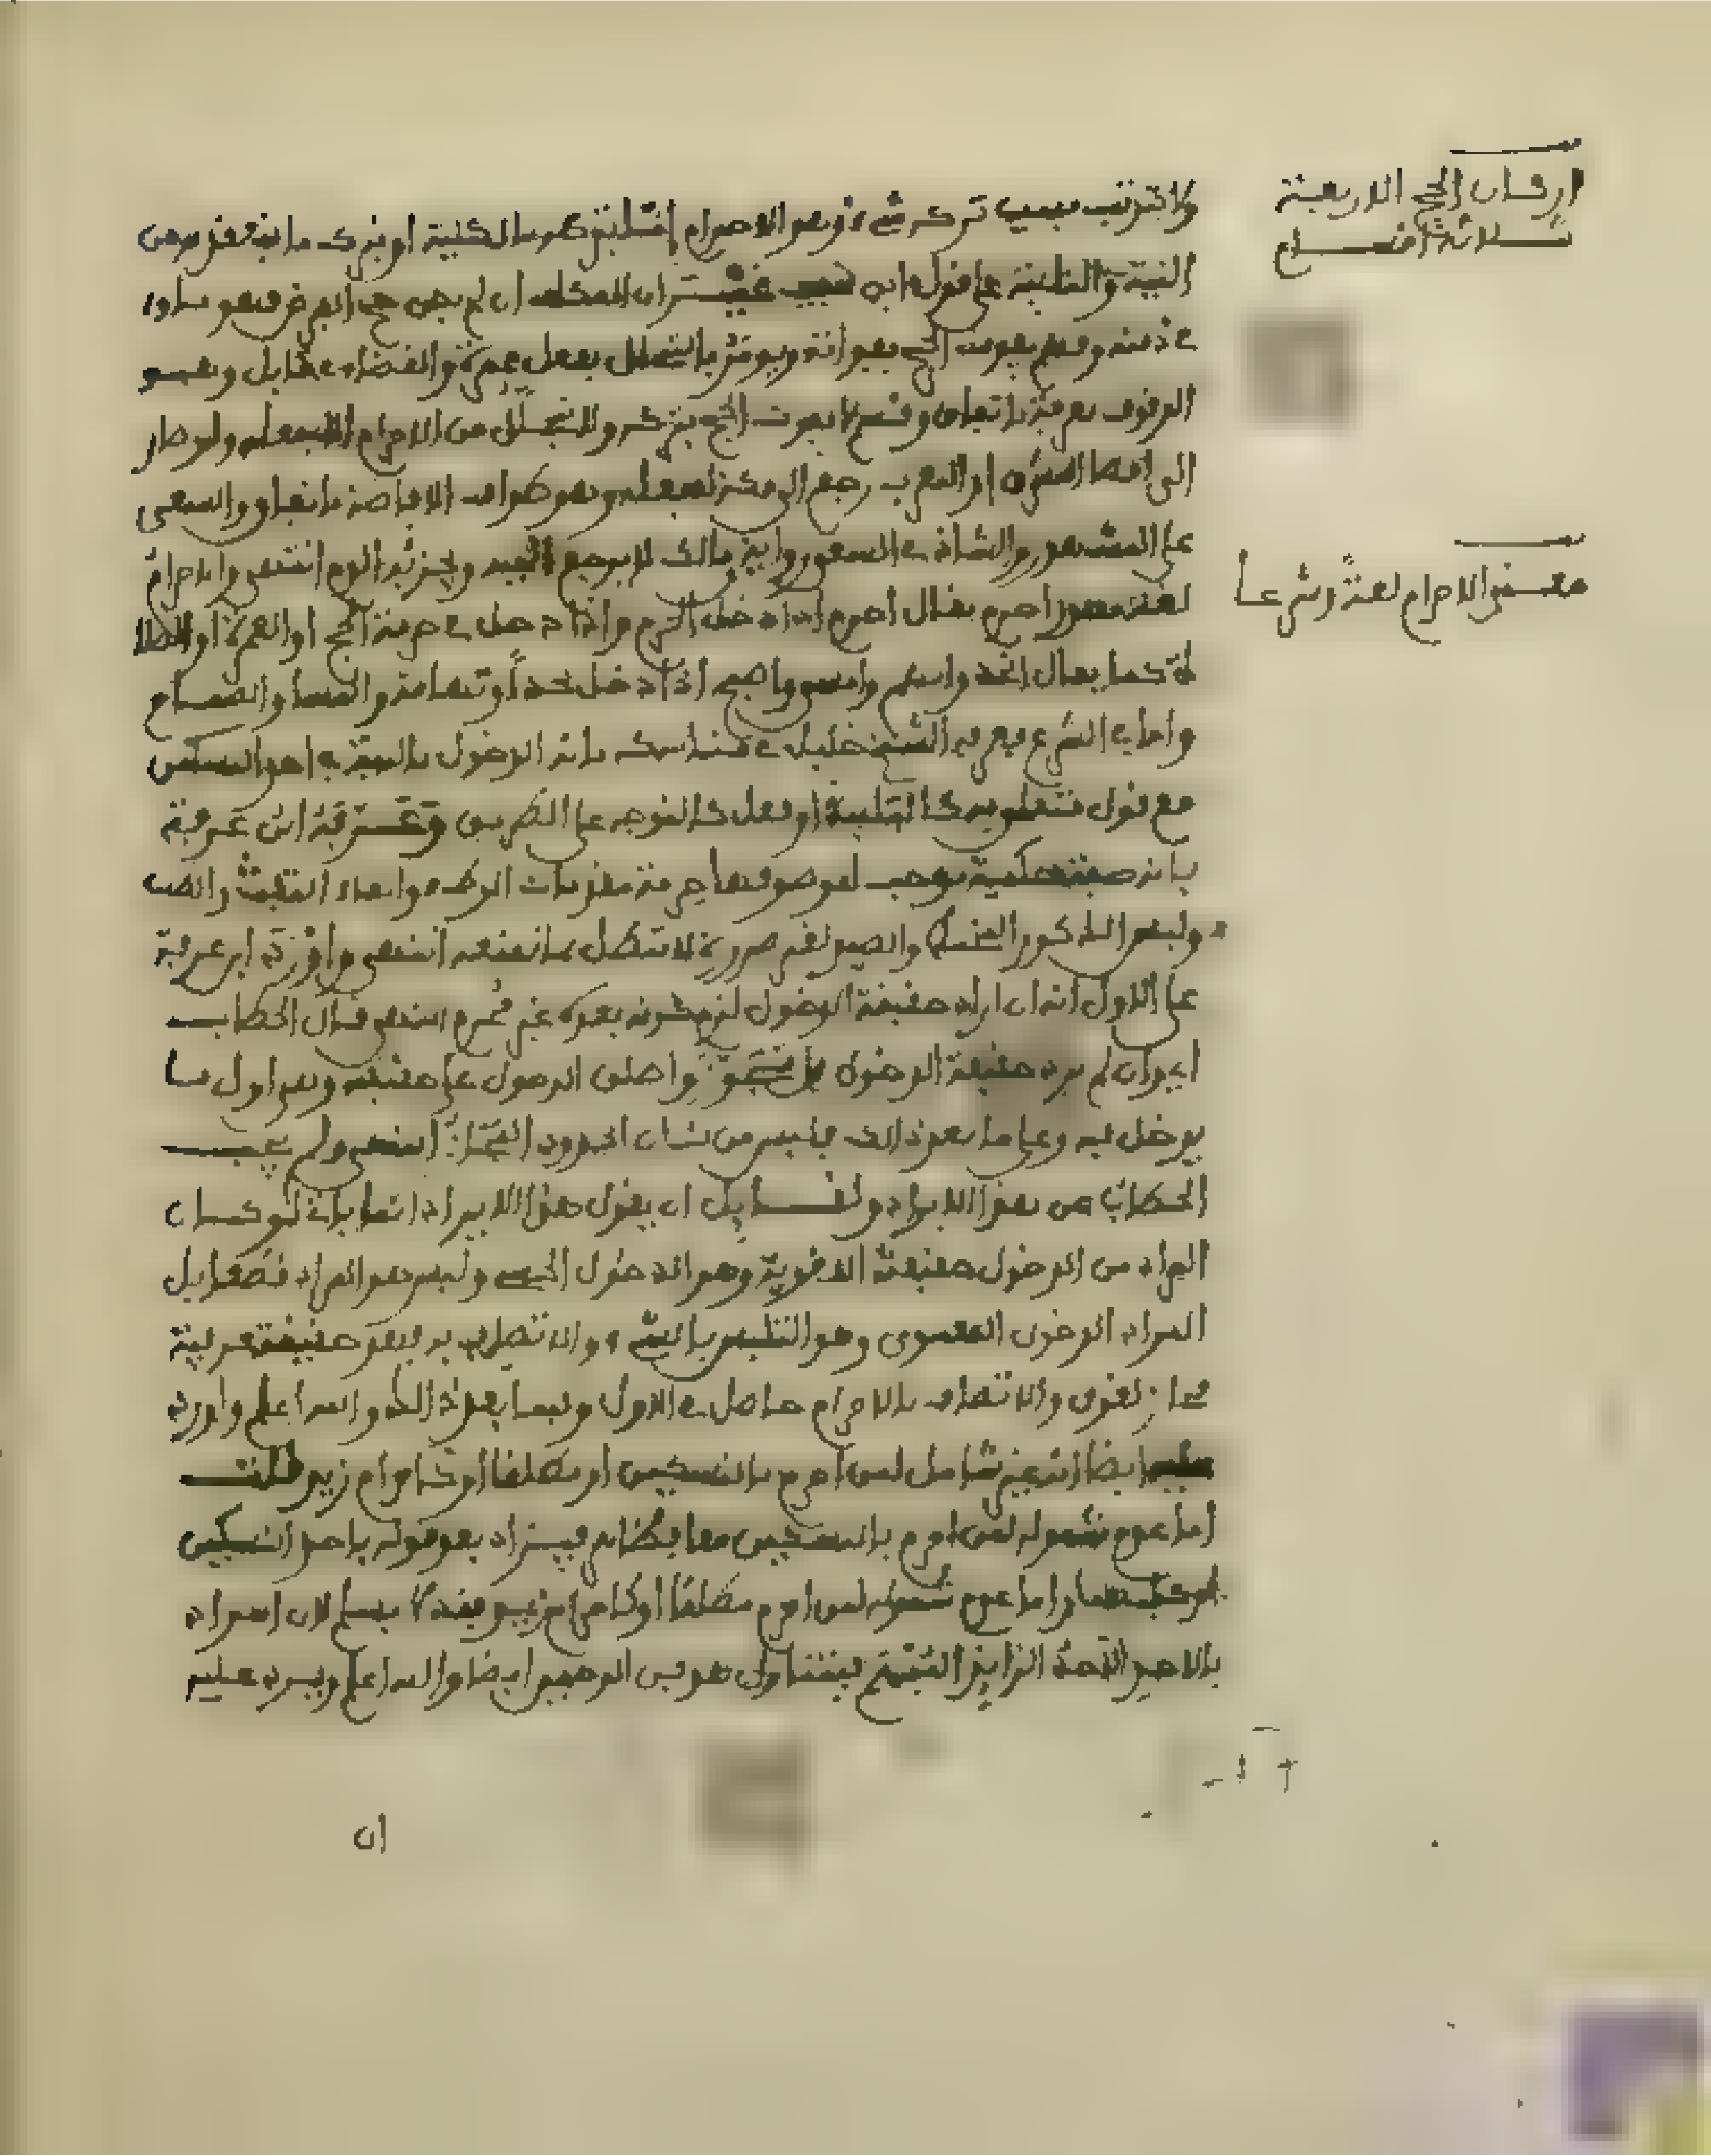 اركان الحج الاربعة
ثلاثة اقسام
ولا يترتب بسبب تركه شيء وهو الاحرام إما بتركه بالكلية او بترك ما ينعقد به من
النية والتلبية على قول ابن حبيب ان لم يكن حج
وقسم يفوت الحج بفواته ويومر بالتحلل بفعل عمرة والقضاء في قابل وهو
الوقوف بعرفة باتفاق وقسم لا يفوت الحج بتركه ولا يتحلل من الاحرام الا بفعله ولو صار
الى اقصا المشرق او المغرب رجع الى مكة لفعله وهو طواف الافاضة باتفاق والسعي
على المشهور والشاذ في السعي رواية مالك لا يرجع اليه ويجزئه الدم انتهى والاحرام
معنى الاحرام لغة وشرعا
لغة مصدر احرم يقال أحرم إذا دخل الحرم واذا دخل في حرمة الحج او العمرة او الصلا
ة كما يقال انجد واتهم وامسى واصبح اذا دخل نجدا وتهامة والمسا والصباح
واما في الشرع فعرفه الشيخ خليل في مناسكه بانه الدخول بالنية في احد النسكين
مع قول متعلق به كالتلبية او فعل كالتوجه على الطريق وعرفه ابن عرفة
بانه صفة حكمية توجب لموصوفها حرمة مقدمات الوطء والقاء التفث والطيب
ولبس الذكور المخيط والصيد لغير ضرورة لا تبطل بما تمنعه انتهى واورد ابن عرفة
على الاول انه ان اراد حقيقة الدخول لزم كونه بعده غير محرم انتهى قال الحطاب
اي وان لم يرد حقيقة الدخول بل تجوز واطلق الدخول على حقيقته وهو اول ما
يدخل فيه وعلى ما بعد ذالك فليس من شان الحدود المجاز انتهى ولم يجب
الحطاب عن هذا الايراد ولقايل ان يقول هذا الايراد انما يأتي لو كان
المراد من الدخول حقيقته اللغوية وهو الدخول الحسي وليس هو المراد قطعا بل
المراد الدخول المعنوي وهو التلبس بالشيء والاتصاف به فهو حقيقة عرفية
مجاز لغوي والاتصاف بالاحرام حاصل في الاول وفيما بعد ذالك والله اعلم واورد
عليه ايضا انه غير شامل لمن احرم بالنسكين او مطلقا او كاحرام زيد قلت
أما عدم شموله لمن احرم بالنسكين معا فظاهر فيزاد بعد قوله باحد النسكين
او كليهما واما عدم شموله لمن احرم مطلقا او كاحرام زيد فقد لا يسلم لان المراد
بالاحد الاحد الداير المبهم فيتناول هذين الوجهين ايضا والله اعلم ويرد عليه
ان